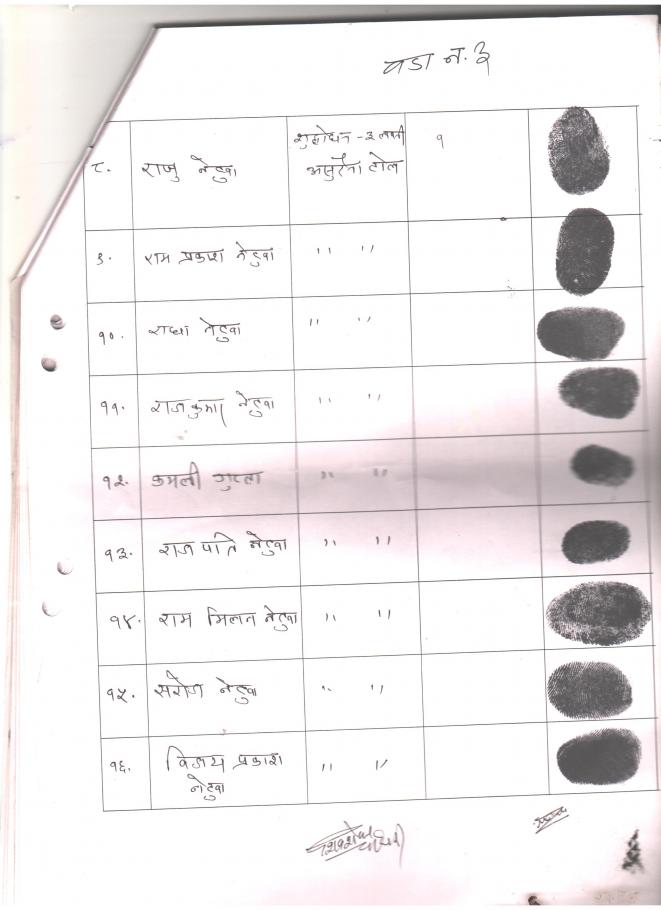 वडा नं. ३
८. राजु नेटुवा शुद्धोधन - ३ लबनी १
अपुरैना टोल
९. राम प्रकाश नेटुवा " "
१०. राधा नेटुवा " "
११. राजकुमार नेटुवा " "
१२. कमली गुप्ता " "
१३. राज पति नेटुवा " "
१४. राम मिलन नेटुवा " "
१५. सरोज नेटुवा " "
१६. विजय प्रकाश " "
नेटुवा